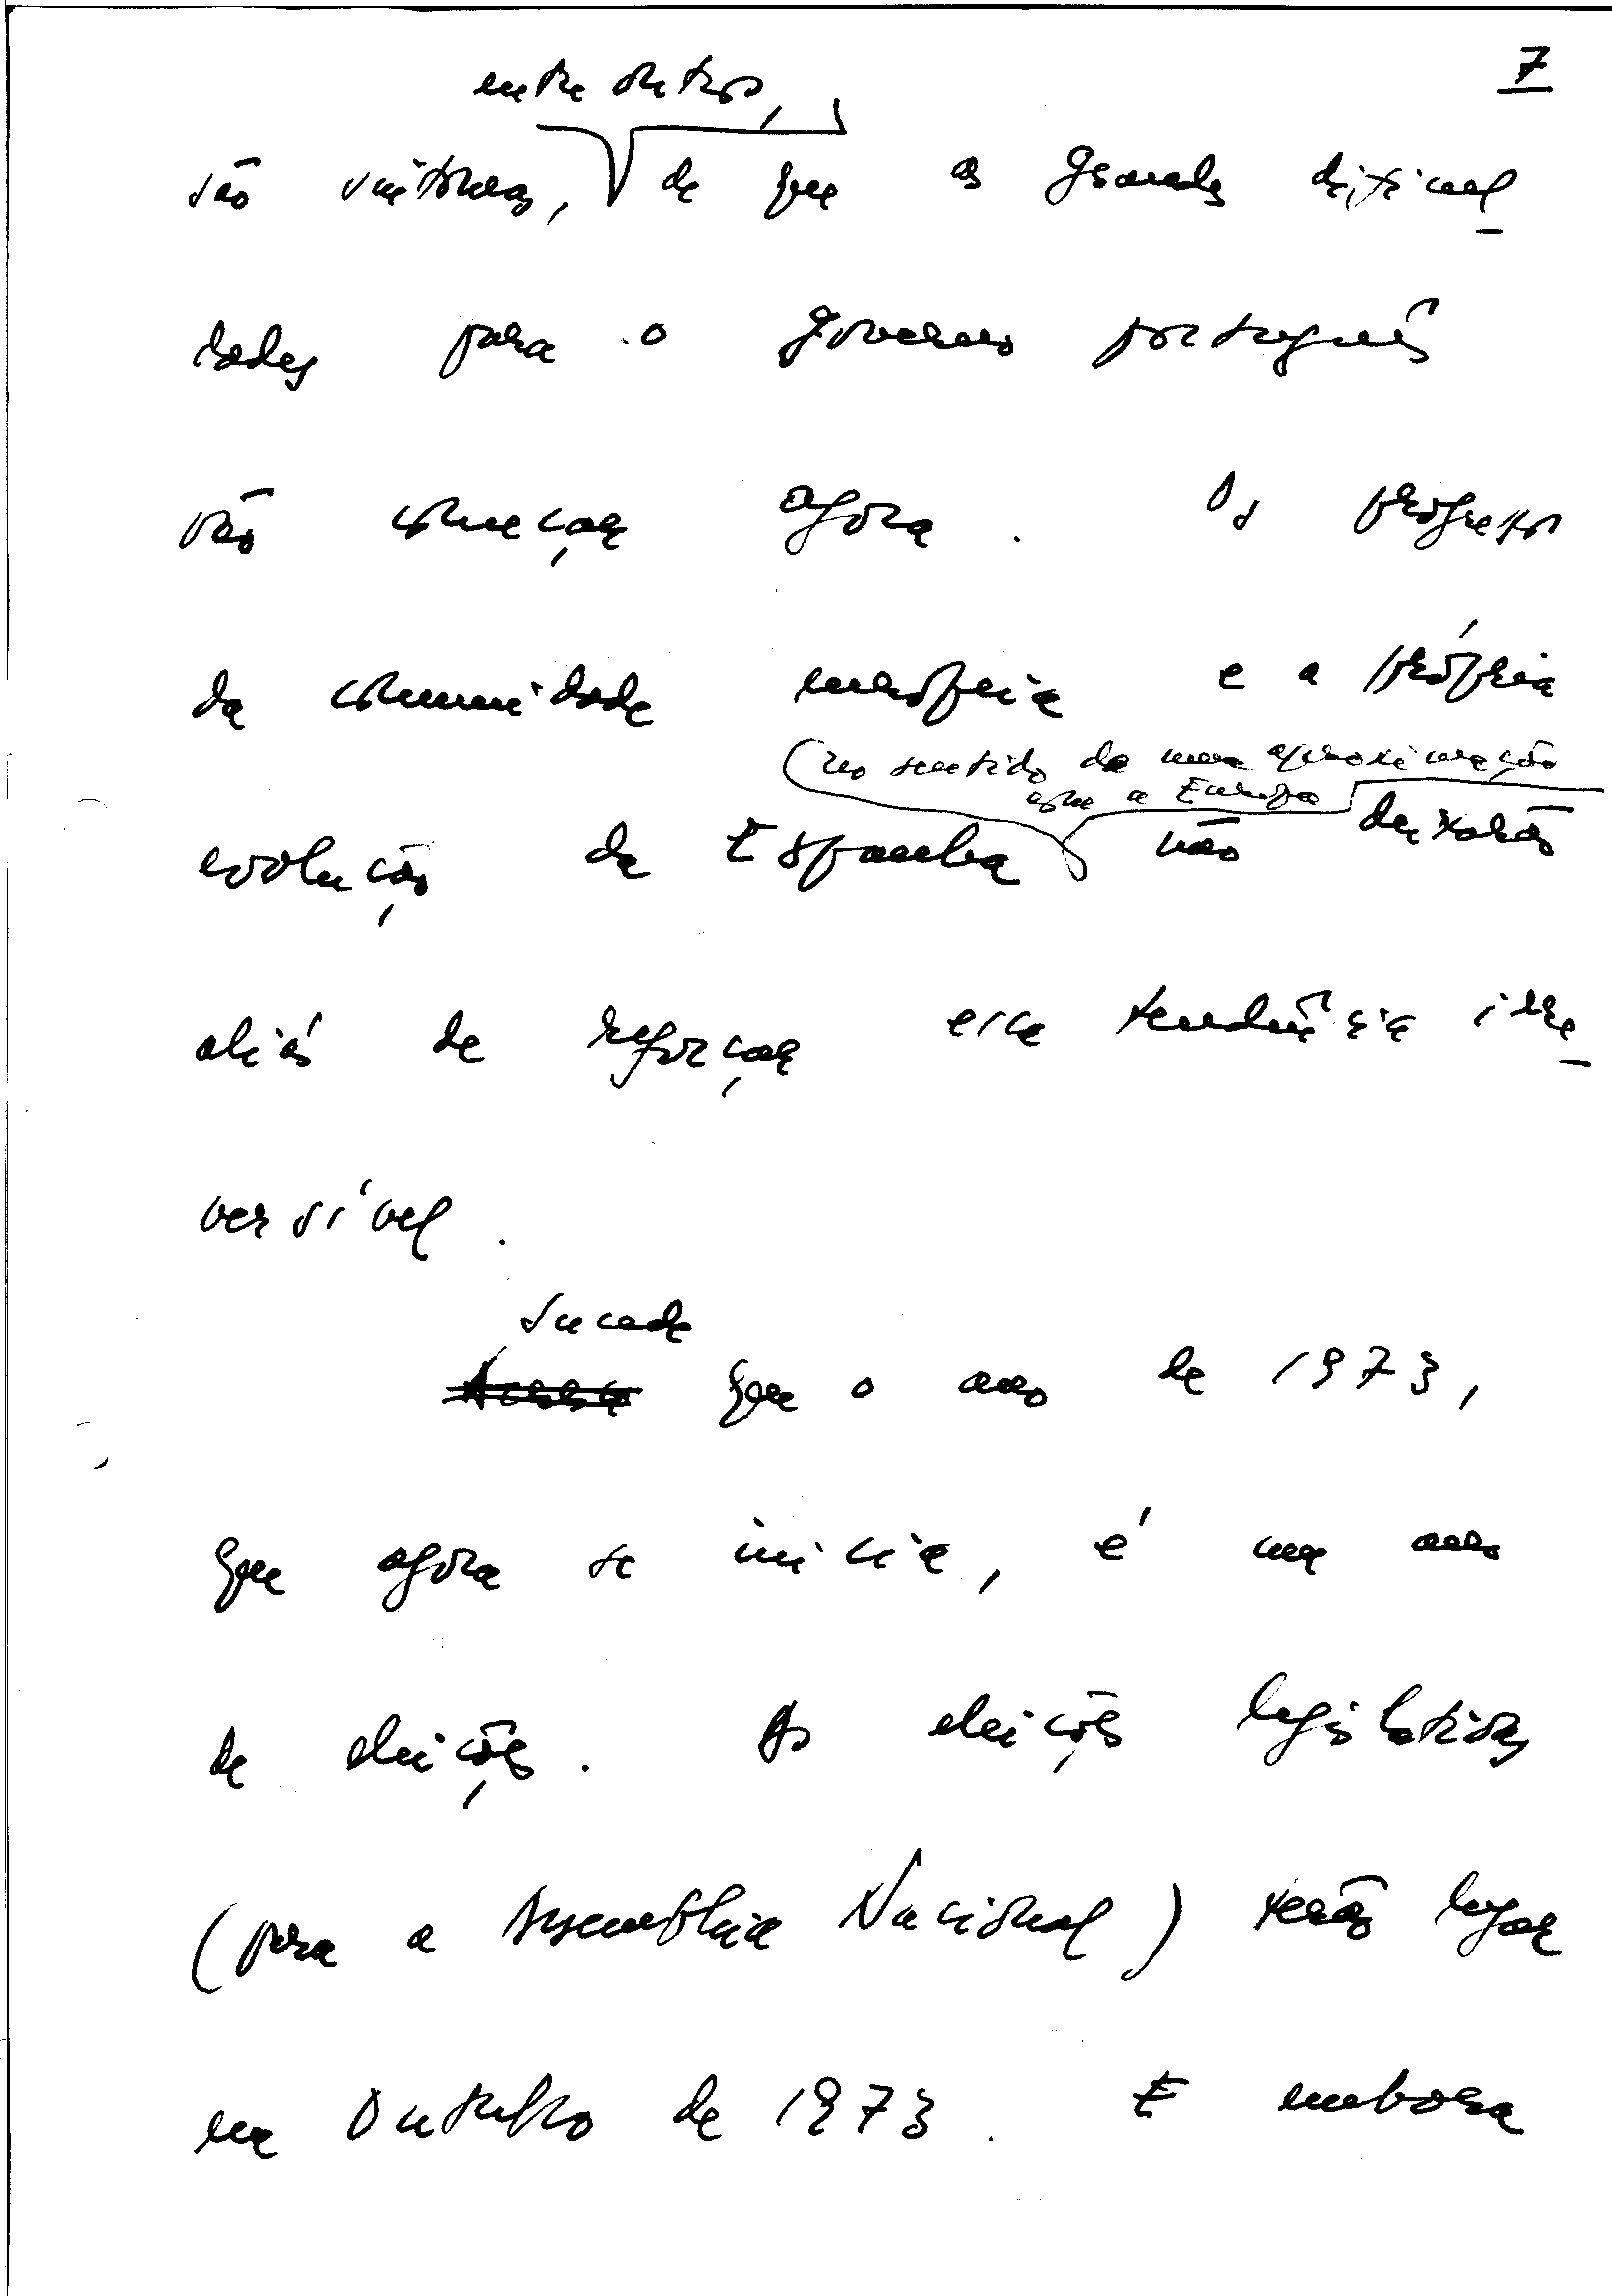 7
entre outros,
são sintomas, de que as grandes dificul
dades para o governo português
vão começar agora. Os progressos
da comunidade europeia e a própria
(no sentido de uma aproximação
com a Europa)
evolução da Espanha não deixarão
aliás de reforçar essa tendência irre
versível.
Sucede
que o ano de 1973,
que agora se inicia, é um ano
de eleições. As eleições legislativas
(para a Assembleia Nacional) terão lugar
em Outubro de 1973. E embora